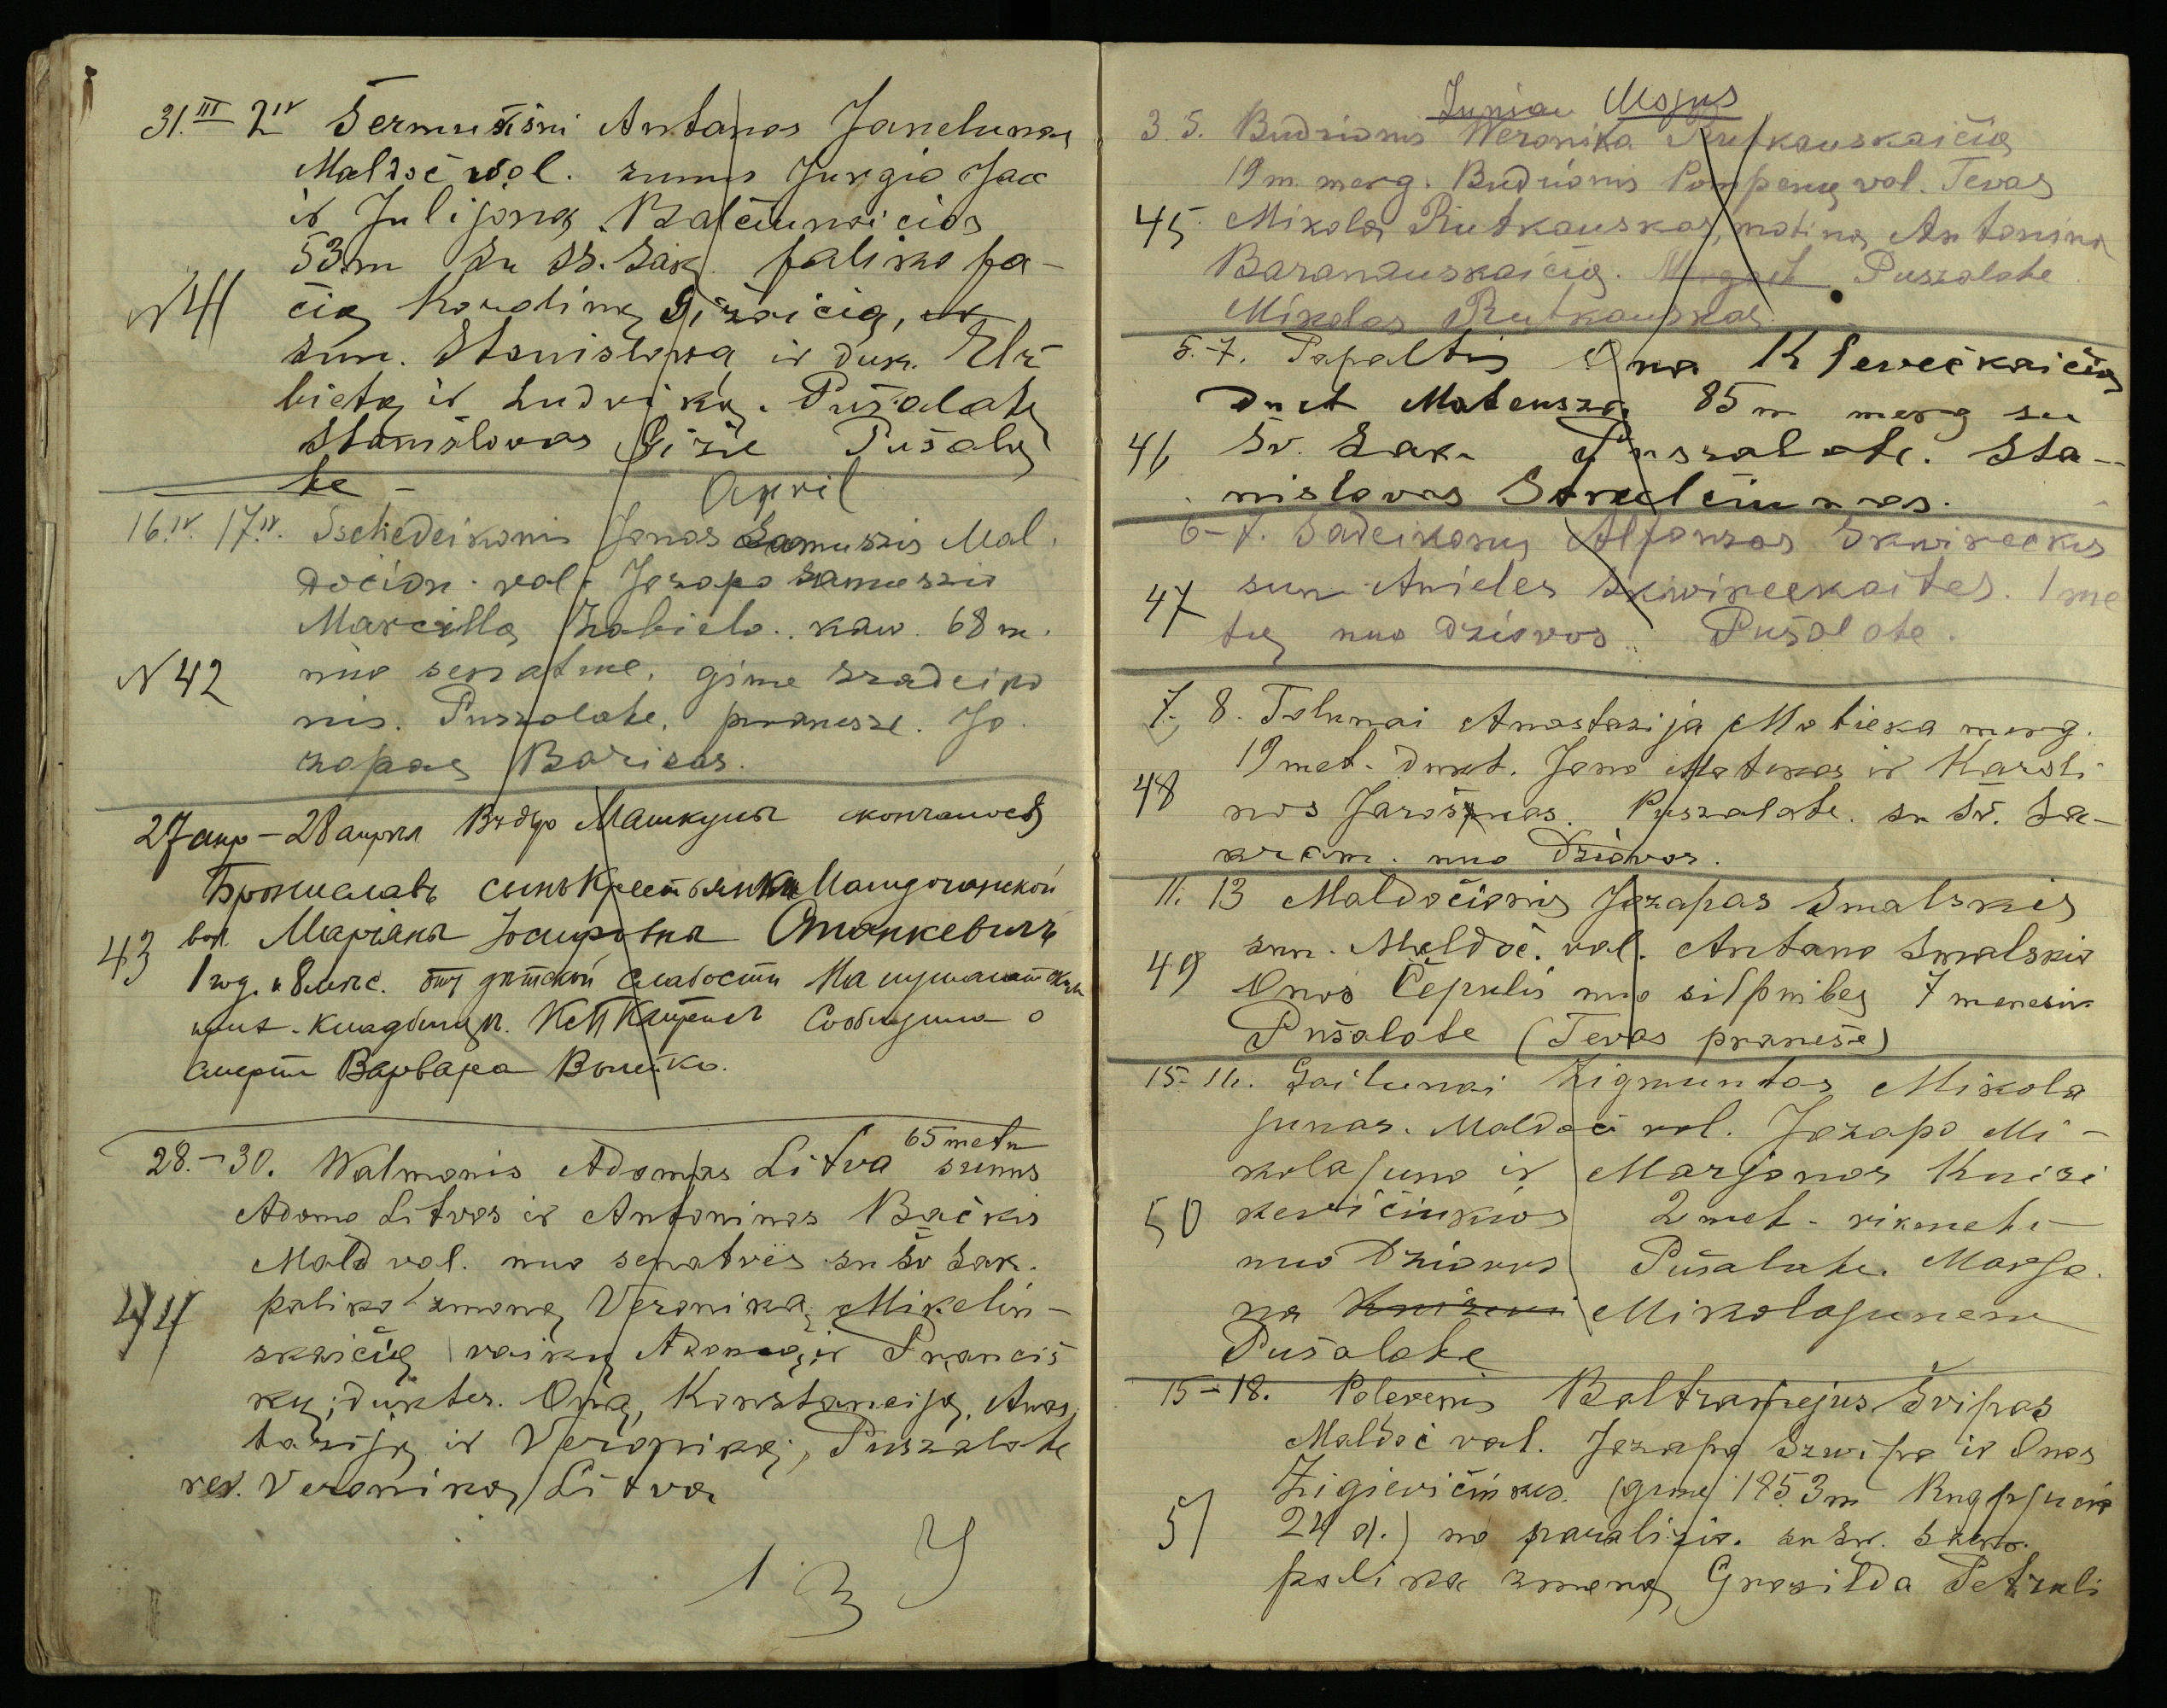 31.III 2IV Šermukšni Antanas Janelunas
Maldoč wol. sunus Jurgio Jan
ir Julijonas Balčiunaičios
53m su šš. Sak. paliko pa-
N41 čią Karoliną Gižaičią,
sun. Stanislova ir duk. Elž
bietą ir Ludviką. Pušalatę
Stanislovas Gižie Pušala
te -
April
16.IV. 17.IV. Schedeikonis Jonas Samuszis Mal.
dočion. val. Jozapo Samuszio
Marcilla Zabielo. kaw. 68 m.
N 42 nuo senatwe. gime szadeiko
nis. Puszolate. pranesze. Jo
zopas Baricas.
27 апр - 28 апрѣля Машкуны скончался
Брониславъ сынъ Крестьянки
43 вол Марiана Іосифовна Станкевичъ
1 год. и 8 мѣс. отъ дѣтской слабости На
Сообщила о
смерти Варвара
28.-30. Walmonis Adomas Litva 65 metu sunus
Adomo Litvos ir Antoninos Bačkis
Mald val. nuo senatvës su šv Sak.
44 paliko žmoną Veroniką Mikelin-
skaičią vaikų Adomą ir Prancis
kų; dukter. Oną, Konstanciją, Anas
taziją ir Veroniką, Puszalate
Veronika Litva
1 3 У
Junia Mojus
3. 5. Budrionis Weronika Rutkauskaičia
19 m. merg. Budrionis Pompenų vol. Tevas
45 Mikolas Rutkauskas, motina Antonina
Baranauskaičia. Puszolate
Mikolas Rutkauskas.
5.-7. Papaltis Ona Kleveckaičia
Dukt Mateusza 85 m merg su
46 Šv. Sak. Puszalate. Sta-
nislovas Strelčiunas.
6-7. Sadeikonių Alfonsas Skwireckis
47 sun Anieles Skwireckaites. 1 me
tų nuo dziovos. Pušolate.
7. 8. Tolunai Anastazija Matieka merg.
19 met. dukt. Jono Matekos ir Karoli
48 nos Jarošunas. Puszalate. su Šv. Sa-
kram. nuo Dziovos.
11. 13 Maldočionis Jozapas Smalskis
sun. Maldoč. val. Antano Smalskio
49 Onos Čepulis nuo silpnibes 7 menesiu
Pušalate (Tevas pranešė)
15-16. Gailunai Zigmuntas Mikola
junas. Maldoč vol. Jozapo Mi-
kolajuno ir Marjonos Knizi
50 kevičiukios 2 met.
nuo Dziovos Pušalate. Marjo.
na Mikolajunene
Pušalate
15-18. Polevenis Baltramejus Švipas
Maldoč val. Jozapo Szwipo ir Onos
Zigievičiukes. (gimę 1853 m Rugpjučio
51 24 d.) no paralizio. su Šv. Sakr.
paliko zmoną Grasilda Petruli